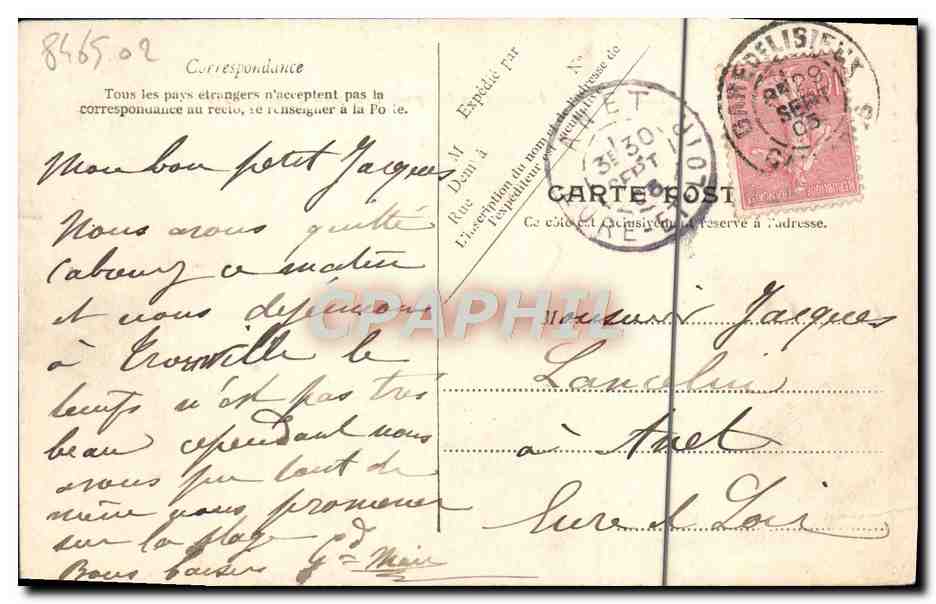 8465.02
Correspondance
Tous les pays étrangers n'acceptent pas la
correspondance au recto, se renseigner à la Poste.
Expédié par
M
Demt à
Rue
N°
L'inscription du nom et de l'adresse de
l'expéditeur est facultative.
GARE DE LISIEUX
SEPT
03
ANET
3E 30
SEPT
03
EURE-ET-LOIR
CARTE POST
Ce côté est exclusivement réservé à l'adresse.
Mon bon petit Jacques
Nous avons quitté
Cabourg ce matin
et nous déjeunons
à Trouville le
temps n'est pas très
beau cependant nous
avons pu tout de
même nous promener
sur la plage
Bons baisers Gd Mère
Monsieur Jacques
Lancelin
à Anet
Eure et Loir
CPAPHIL